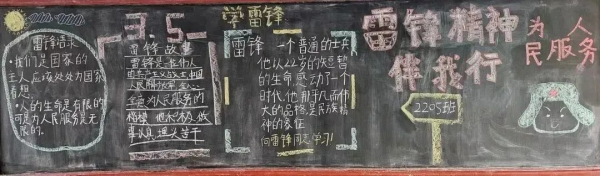 雷锋语录
·我们是国家的
主人应该处处为国家
着想。
·人的生命是有限的
可是为人民服务是无
限的.
3.5
雷锋故事
雷锋是
人民
全心为人民服务的
楷模 他
学雷锋
雷锋 一个普通的士兵
他以22岁的短暂
的生命感动了一个
时代,他那平凡而伟
大的品格,是民族精
神的象征
向雷锋同志学习!
雷锋精神
伴我行
2205班
为人
民服务